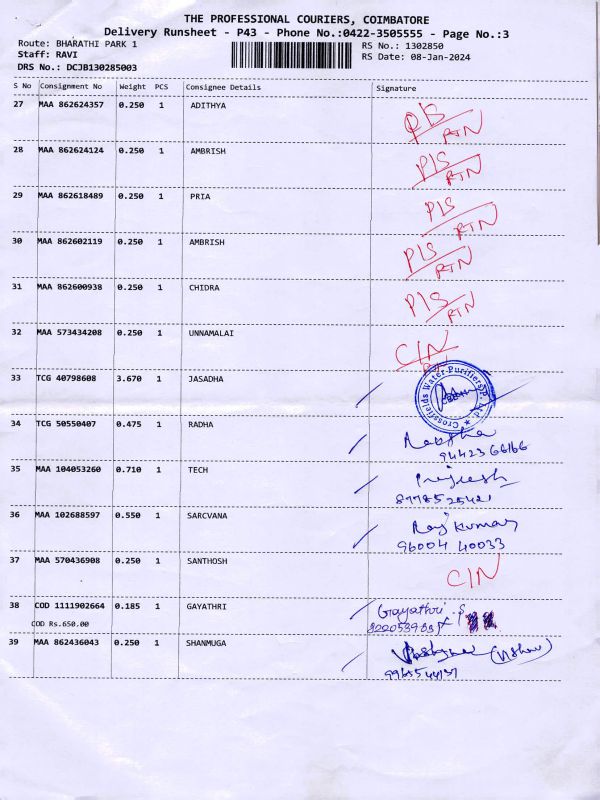 THE PROFESSIONAL COURIERS, COIMBATORE
Delivery Runsheet - P43 - Phone No.:0422-3505555 - Page No.:3
Route: BHARATHI PARK 1 RS No.: 1302850
Staff: RAVI RS Date: 08-Jan-2024
DRS No.: DCJB130285003
S No Consignment No Weight PCS Consignee Details Signature
27 MAA 862624357 0.250 1 ADITHYA P/S RTN
28 MAA 862624124 0.250 1 AMBRISH P/S RTN
29 MAA 862618489 0.250 1 PRIA P/S RTN
30 MAA 862602119 0.250 1 AMBRISH P/S RTN
31 MAA 862600938 0.250 1 CHIDRA P/S RTN
32 MAA 573434208 0.250 1 UNNAMALAI C/N
33 TCG 40798608 3.670 1 JASADHA Crossfields Water Purifiers P. Ltd.
34 TCG 50550407 0.475 1 RADHA Radha
9442366166
35 MAA 104053260 0.710 1 TECH
8778525421
36 MAA 102688597 0.550 1 SARCVANA Rajkumar
96004 40033
37 MAA 570436908 0.250 1 SANTHOSH C/N
38 COD 1111902664 0.185 1 GAYATHRI Gayathri.S
COD Rs.650.00
39 MAA 862436043 0.250 1 SHANMUGA